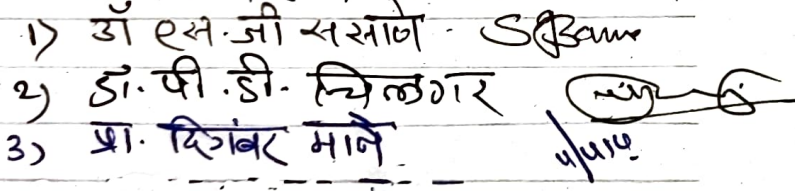 1) डॉ एस.जी ससाणे.
2) डॉ. पी.डी. चिलगर
3) प्रा. दिगंबर माने